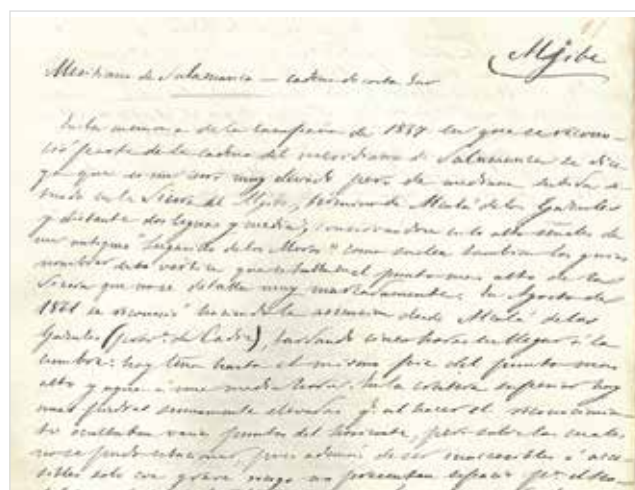 Aljibe
Meridiano de Salamanca — cadena de costa Sur
En la memoria de la campaña de 1857 en que se recono-
ció parte de la cadena del meridiano de Salamanca se di-
ce que es un cerro muy elevado pero de mediana subida si-
tuado en la Sierra del Aljibe, término de Alcalá de los Gazules
y distante dos leguas y media; conservándose en lo alto señales de
un antiguo "Lugarcito de los Moros" como suelen también los guias
nombrar este vértice que es tambien el punto mas alto de la
Sierra que no se detalla muy marcadamente. En Agosto de
1861 se reconoció haciendo la ascension desde Alcalá de los
Gazules (prov.ª de Cadiz), tardando cinco horas en llegar á la
cumbre: hay leña hasta el mismo pie del punto mas
alto y agua á una media hora. En la contera superior hay
unas piedras sumamente elevadas y al hacer el reconocimien-
to ocultaban varios puntos del horizonte, pero sobre las cuales
no se pudo estacionar, pues ademas de ser inaccesibles ó acce-
sibles solo con grave riesgo no presentan espacio p.ª el